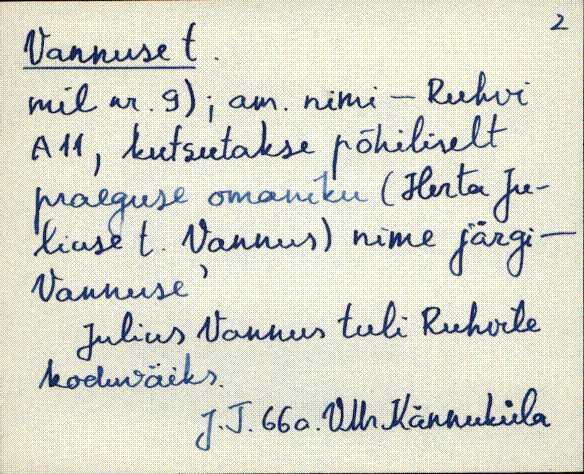 2
Vannuse t.
mil nr. 9); am. nimi – Ruhvi
A 11, kutsutakse põhiliselt
praeguse omaniku (Herta Ju-
liuse t. Vannus) nime järgi –
Vannuse'
Julius Vannus tuli Ruhvile
koduväiks.
J. T. 66 a. VMr Kännuküla